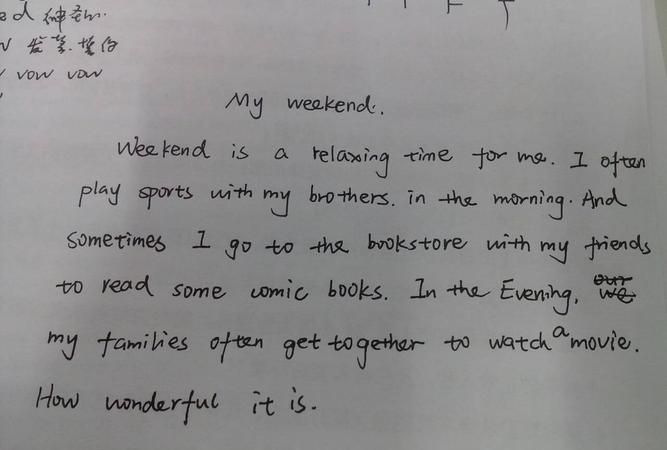 神圣
vow vow
My weekend.
Weekend is a relaxing time for me. I often
play sports with my brothers. in the morning. And
sometimes I go to the bookstore with my friends
to read some comic books. In the Evening, our we
my families often get together to watch a movie.
How wonderful it is.